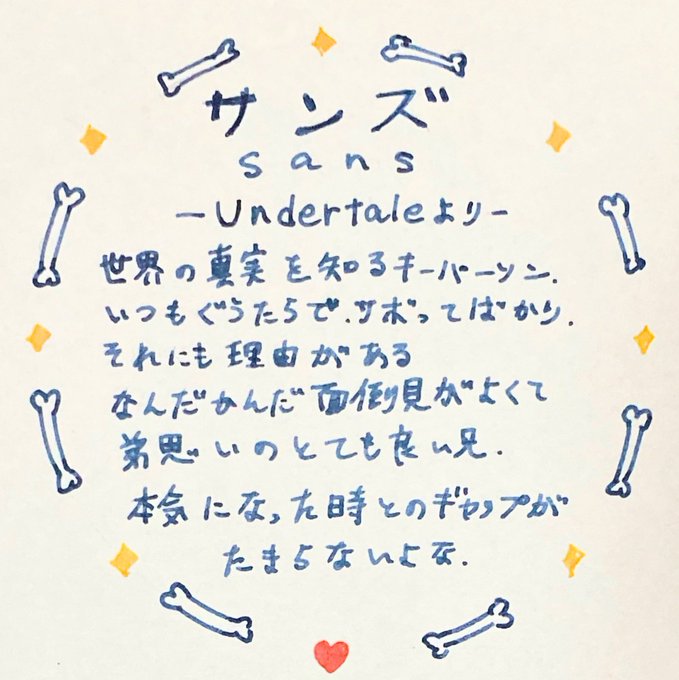 サンズ
sans
-Undertaleより-
世界の真実を知るキーパーソン.
いつもぐうたらで.サボってばかり.
それにも理由がある
なんだかんだ面倒見がよくて
弟思いのとても良い兄.
本気になった時とのギャップが
たまらないよな.